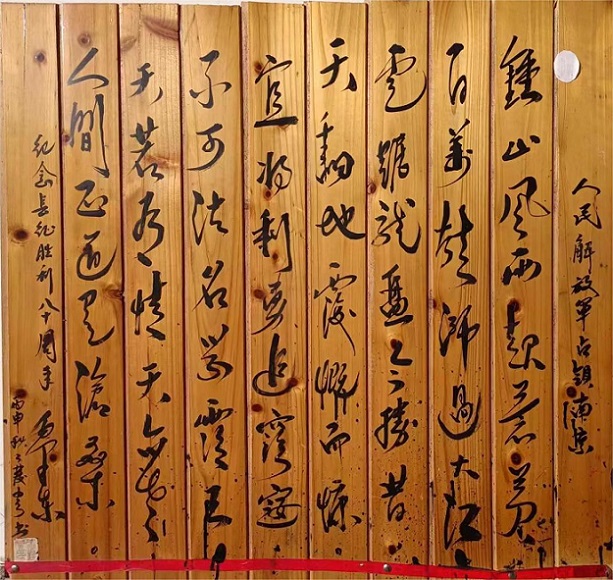 人民解放軍占領南京
鍾山风雨起苍黄
百萬雄师過大江
虎踞龍盘今勝昔
天翻地覆慨而慷
宜将剩勇追窮寇
不可沽名学霸王
天若有情天亦老
人間正道是滄桑。
紀念長征胜利八十周年
丙申秋
书